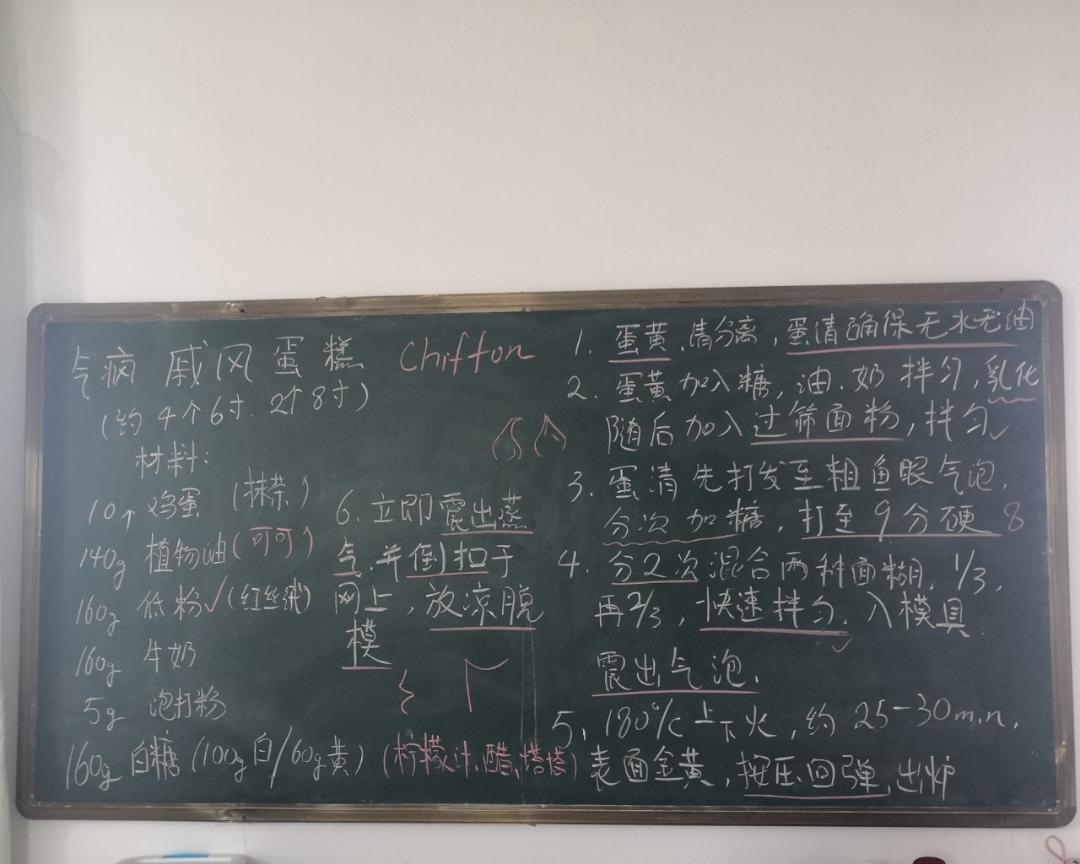 气疯 戚风蛋糕 Chiffon
(约4个6寸.2个8寸)
材料:
10个 鸡蛋 (抹茶)
140g 植物油(可可)
160g 低粉✓(红丝绒)
160g 牛奶
5g 泡打粉
160g 白糖(100g白/60g黄)(柠檬汁、醋、塔塔)
6.立即震出蒸
气,并倒扣于
网上,放凉脱
模
1.蛋黄、清分离,蛋清确保无水无油
2.蛋黄加入糖,油.奶拌匀,乳化
随后加入过筛面粉,拌匀✓
3.蛋清先打发至粗鱼眼气泡,
分次加糖,打至9分硬 8
4.分2次混合两种面糊,1/3,
再2/3,快速拌匀.入模具.
震出气泡.
5、180℃上下火,约25-30min,
表面金黄,按压回弹,出炉